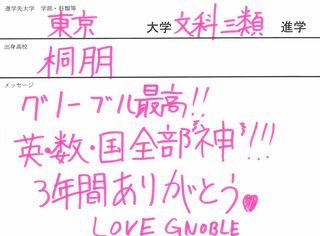 進学先大学 学部・科類等
東京 大学 文科三類 進学
出身高校
桐朋
メッセージ
グノーブル最高!!
英・数・国全部ネ申!!!
3年間ありがとう♥
LOVE GNOBLE